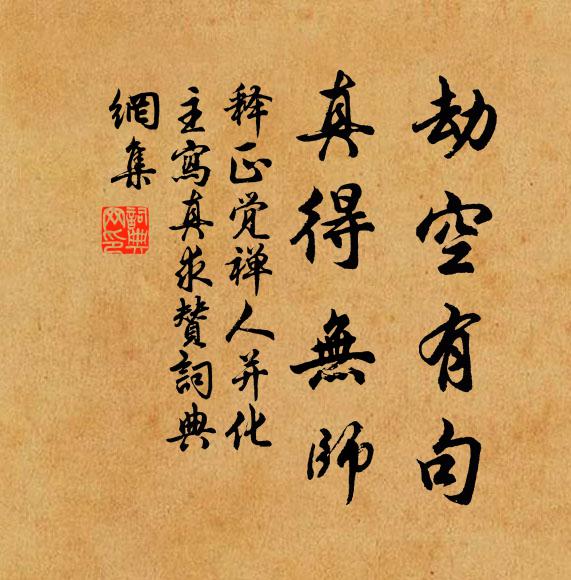 劫空有句
真得無師
释正觉禅人并化
主寫真求贊詞典
網集
詞典
网印